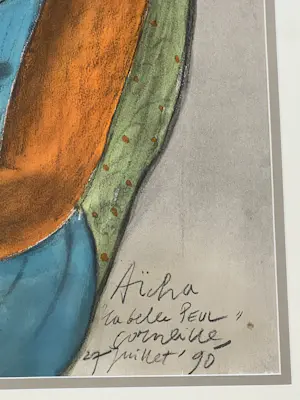 Aïcha
"la belle PEUL"
Corneille
27 juillet '90